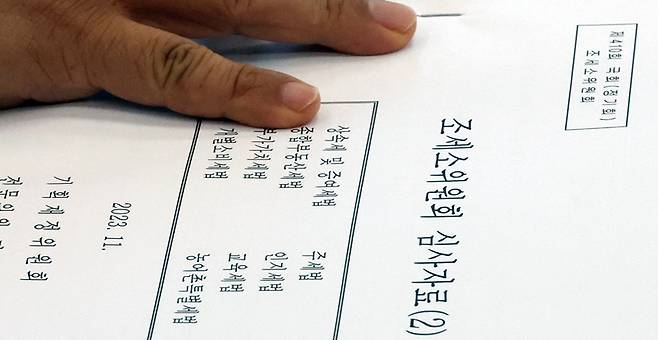 제410회 국회(정기회)
조세소위원회
조세소위원회 심사자료(2)
상속세 및 증여세법 주세법
종합부동산세법 인지세법
부가가치세법 교육세법
개별소비세법 농어촌특별세법
2023. 11.
기획재정위원회